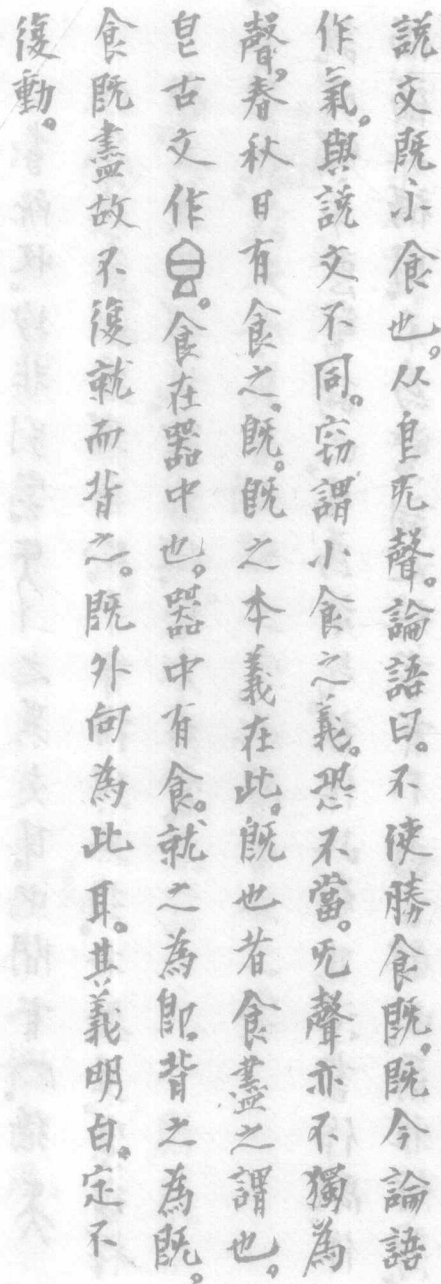 說文既小食也。从皀旡聲。論語曰。不使勝食既。既今論語
作氣。與說文不同。窃謂小食之義。恐不當。旡聲亦不獨為
聲。春秋日有食之。既。既之本義在此。既也者食盡之謂也。
皀古文作。食在器中也。器中有食。就之為即。背之為既。
食既盡故不復就而背之。既外向為此耳。其義明白。定不
復動。